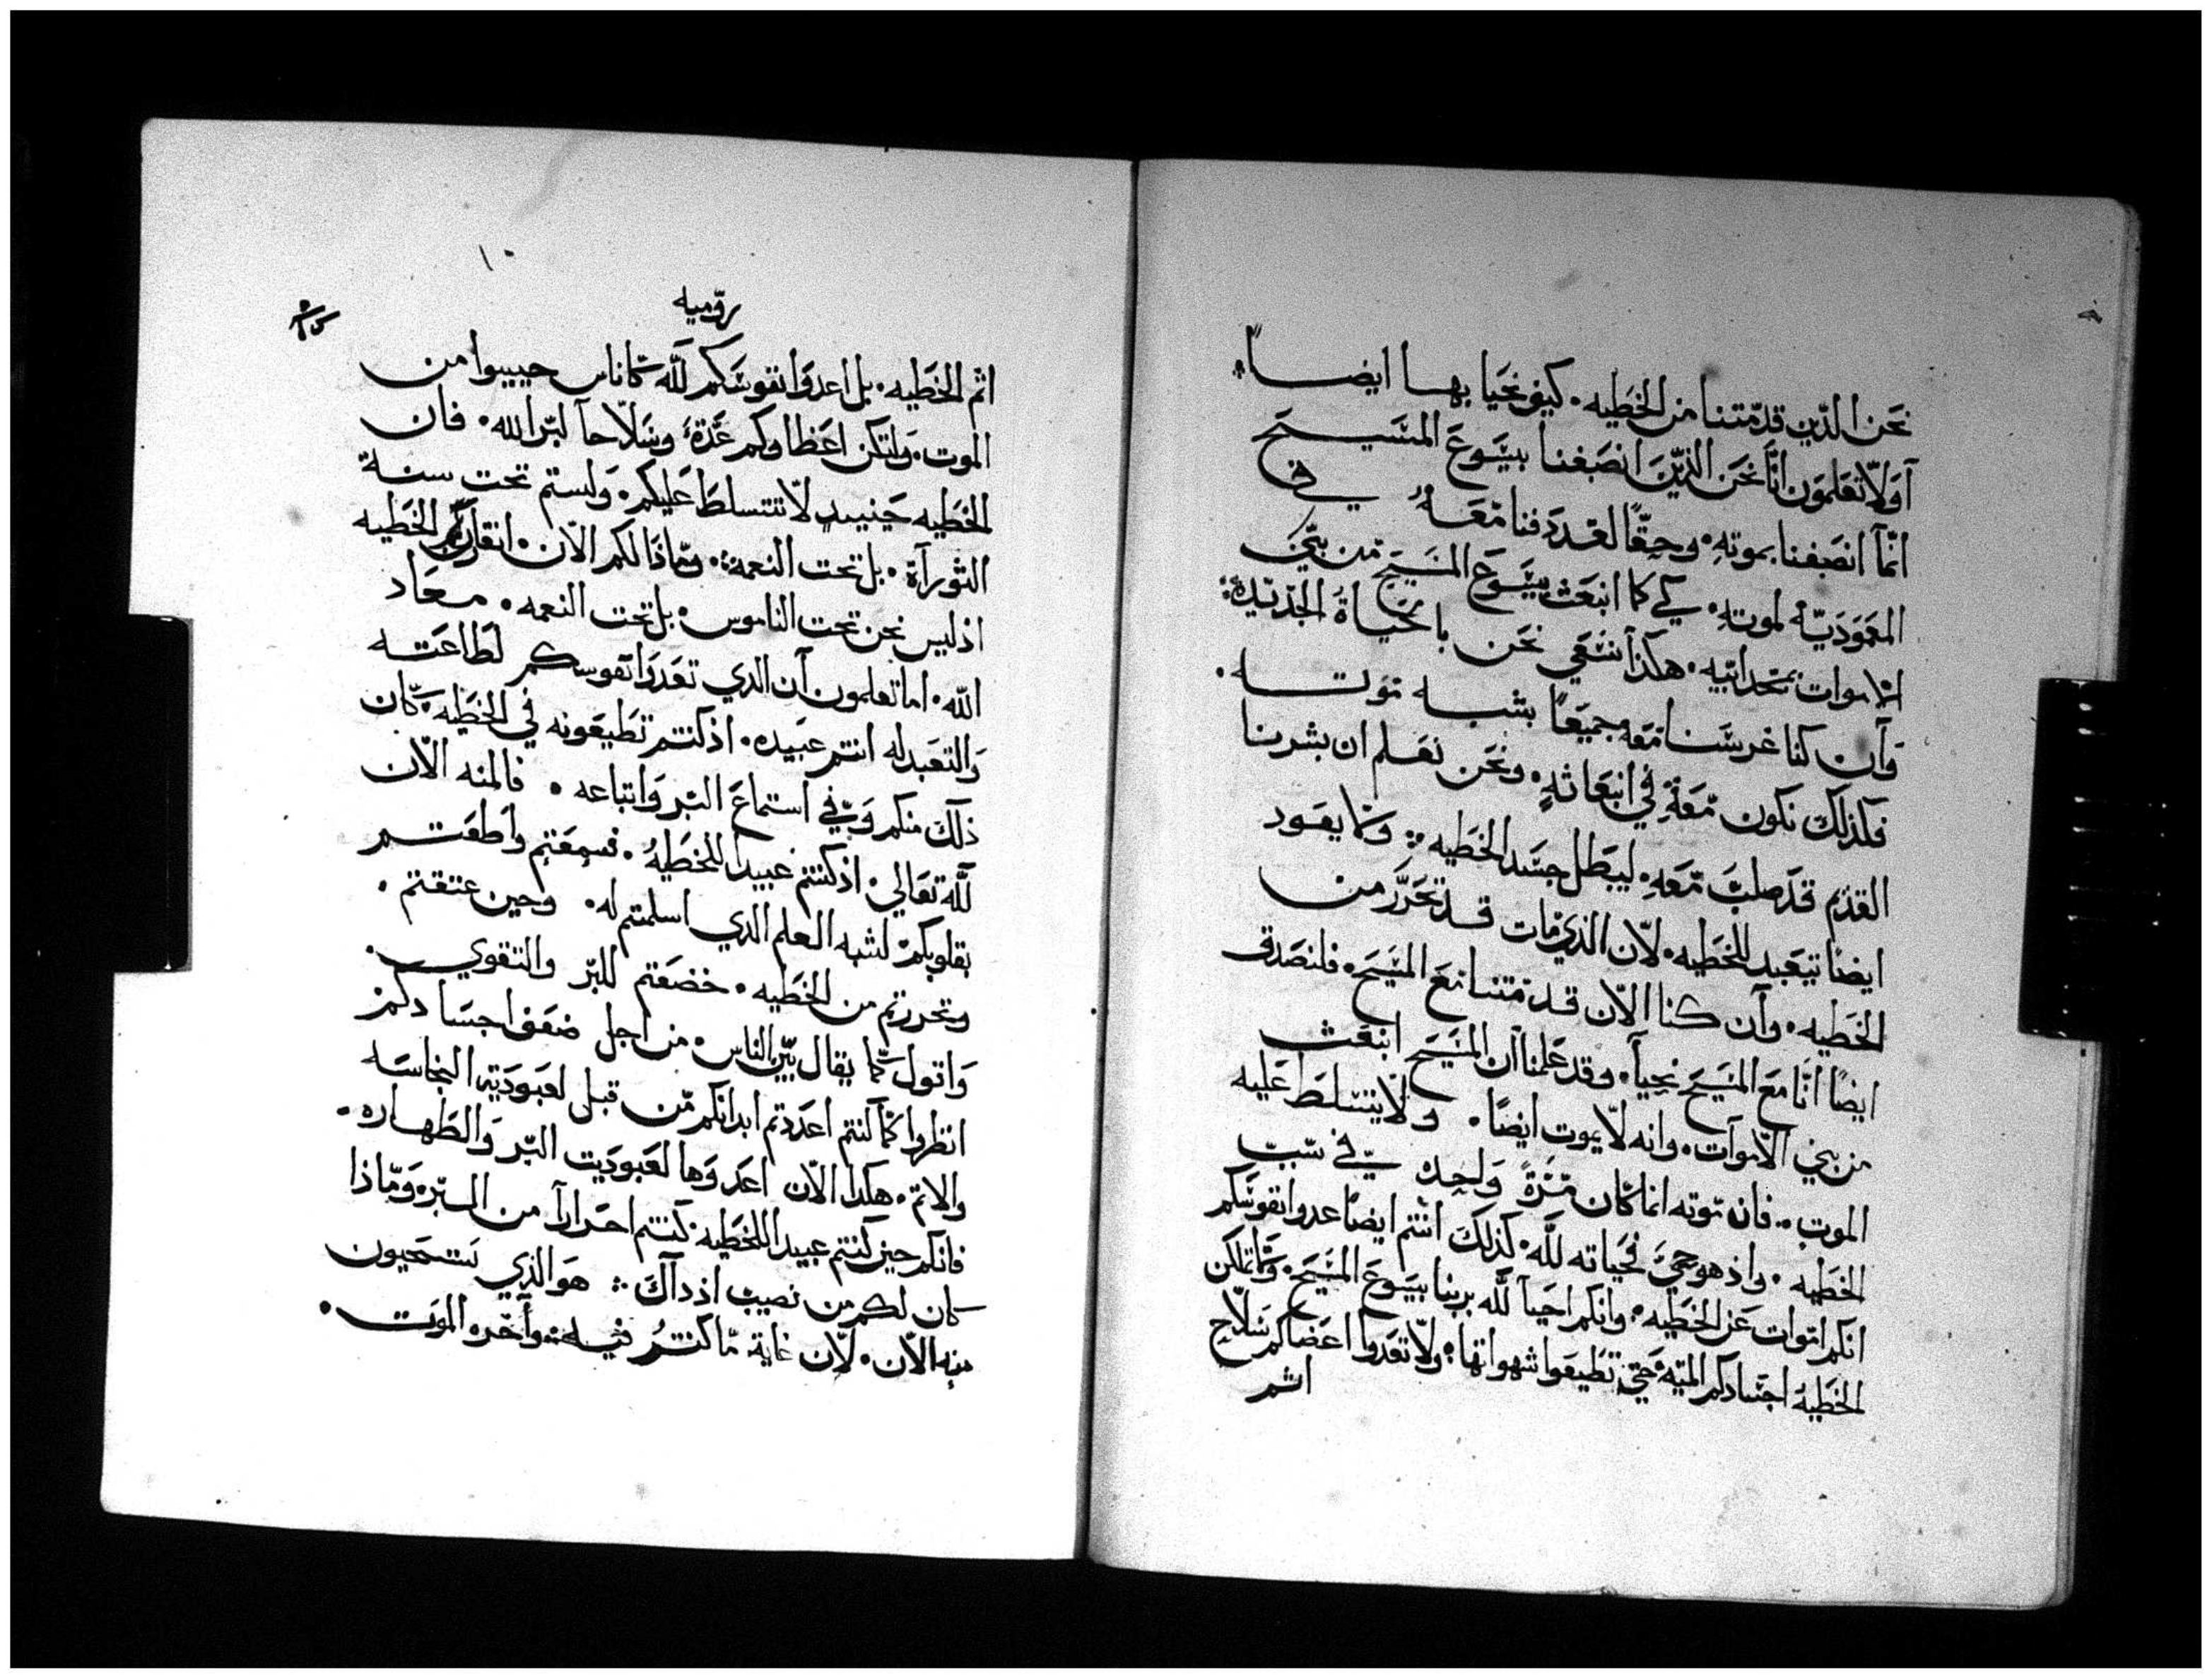 نحن الذين قد متنا من الخطيه. كيف نحيا بها ايضاً.
آولا تعلمون انا نحن الذين انصبغنا بيسوع المسيح
انما انصبغنا بموته. وحقاً لقد دفنا معه في
المعموديه لموته. كي كما انبعث يسوع المسيح من بين
الاموات بمجد ابيه. هكذا نسعي نحن بالحياة الجديدة:
وآن كنا غرسنا معه جميعاً بشبه موته.
فكذلك نكون معه في انبعاثه. ونحن نعلم ان بشرنا
القديم قد صلب معه. ليبطل جسد الخطيه: وكما يعود
ايضاً تيعبد للخطيه. لان الذي مات قد تحرر من
الخطيه. وآن كنا الان قد متنا مع المسيح. فلنصدق
ايضاً انا مع المسيح نحيا. وقد علمنا آن المسيح انبعث
من بين الاموآت. وانه لا يموت ايضاً. ولا يتسلط عليه
الموت. فان موته انما كان مرةً واحده في سبب
الخطيه. واذ هو حي فحياته لله. كذلك انتم ايضاً عدوا نفوسكم
انكم اموات عن الخطيه. وانكم احيآ لله بربنا يسوع المسيح. ولا تملكن
الخطيه اجسادكم الميته حتي تطيعوا شهواتها. ولا تعدوا اعضاكم سلاح
اثم
١٠
روميه
اثم الخطيه. بل اعدوا نفوسكم لله كاناس حييوا من
الموت. ولتكن اعضاوكم عدة وسلاحاً لبر الله. فان
الخطيه حينييد لا تتسلط عليكم. ولستم تحت سنة
الثورآة. بل تحت النعمة. وماذا لكم الان. انقارف الخطيه
اذ ليس نحن تحت الناموس. بل تحت النعمه. معاد
الله. اما تعلمون آن الدي تعدوا نفوسكم لطاعته
والتعبد له انتم عبيده. اذ كنتم تطيعونه في الخطيه. كان
ذلك منكم وفي استماع البر واتباعه. فالمنه الان
لله تعالي. اذ كنتم عبيداً للخطيه. فسمعتم واطعتم
بقلوبكم لشبه العلم الدي اسلمتم له. وحين عتقتم.
وتحررتم من الخطيه. خضعتم للبر والتقوي.
واقول كما يقال بين الناس. من اجل ضعف اجسادكم
انظروا كما كنتم اعددتم ابدانكم من قبل لعبودية النجاسه
والاثم. هكدا الان اعدوها لعبوديت البر والطهاره.
فانكم حين كنتم عبيداً للخطيه كنتم احراراً من البر. وماذا
كان لكم من نصيب اذ داك: هو الذي تستحيون
منه الان. لان غاية ما كنتم فيه. وآخره الموت.